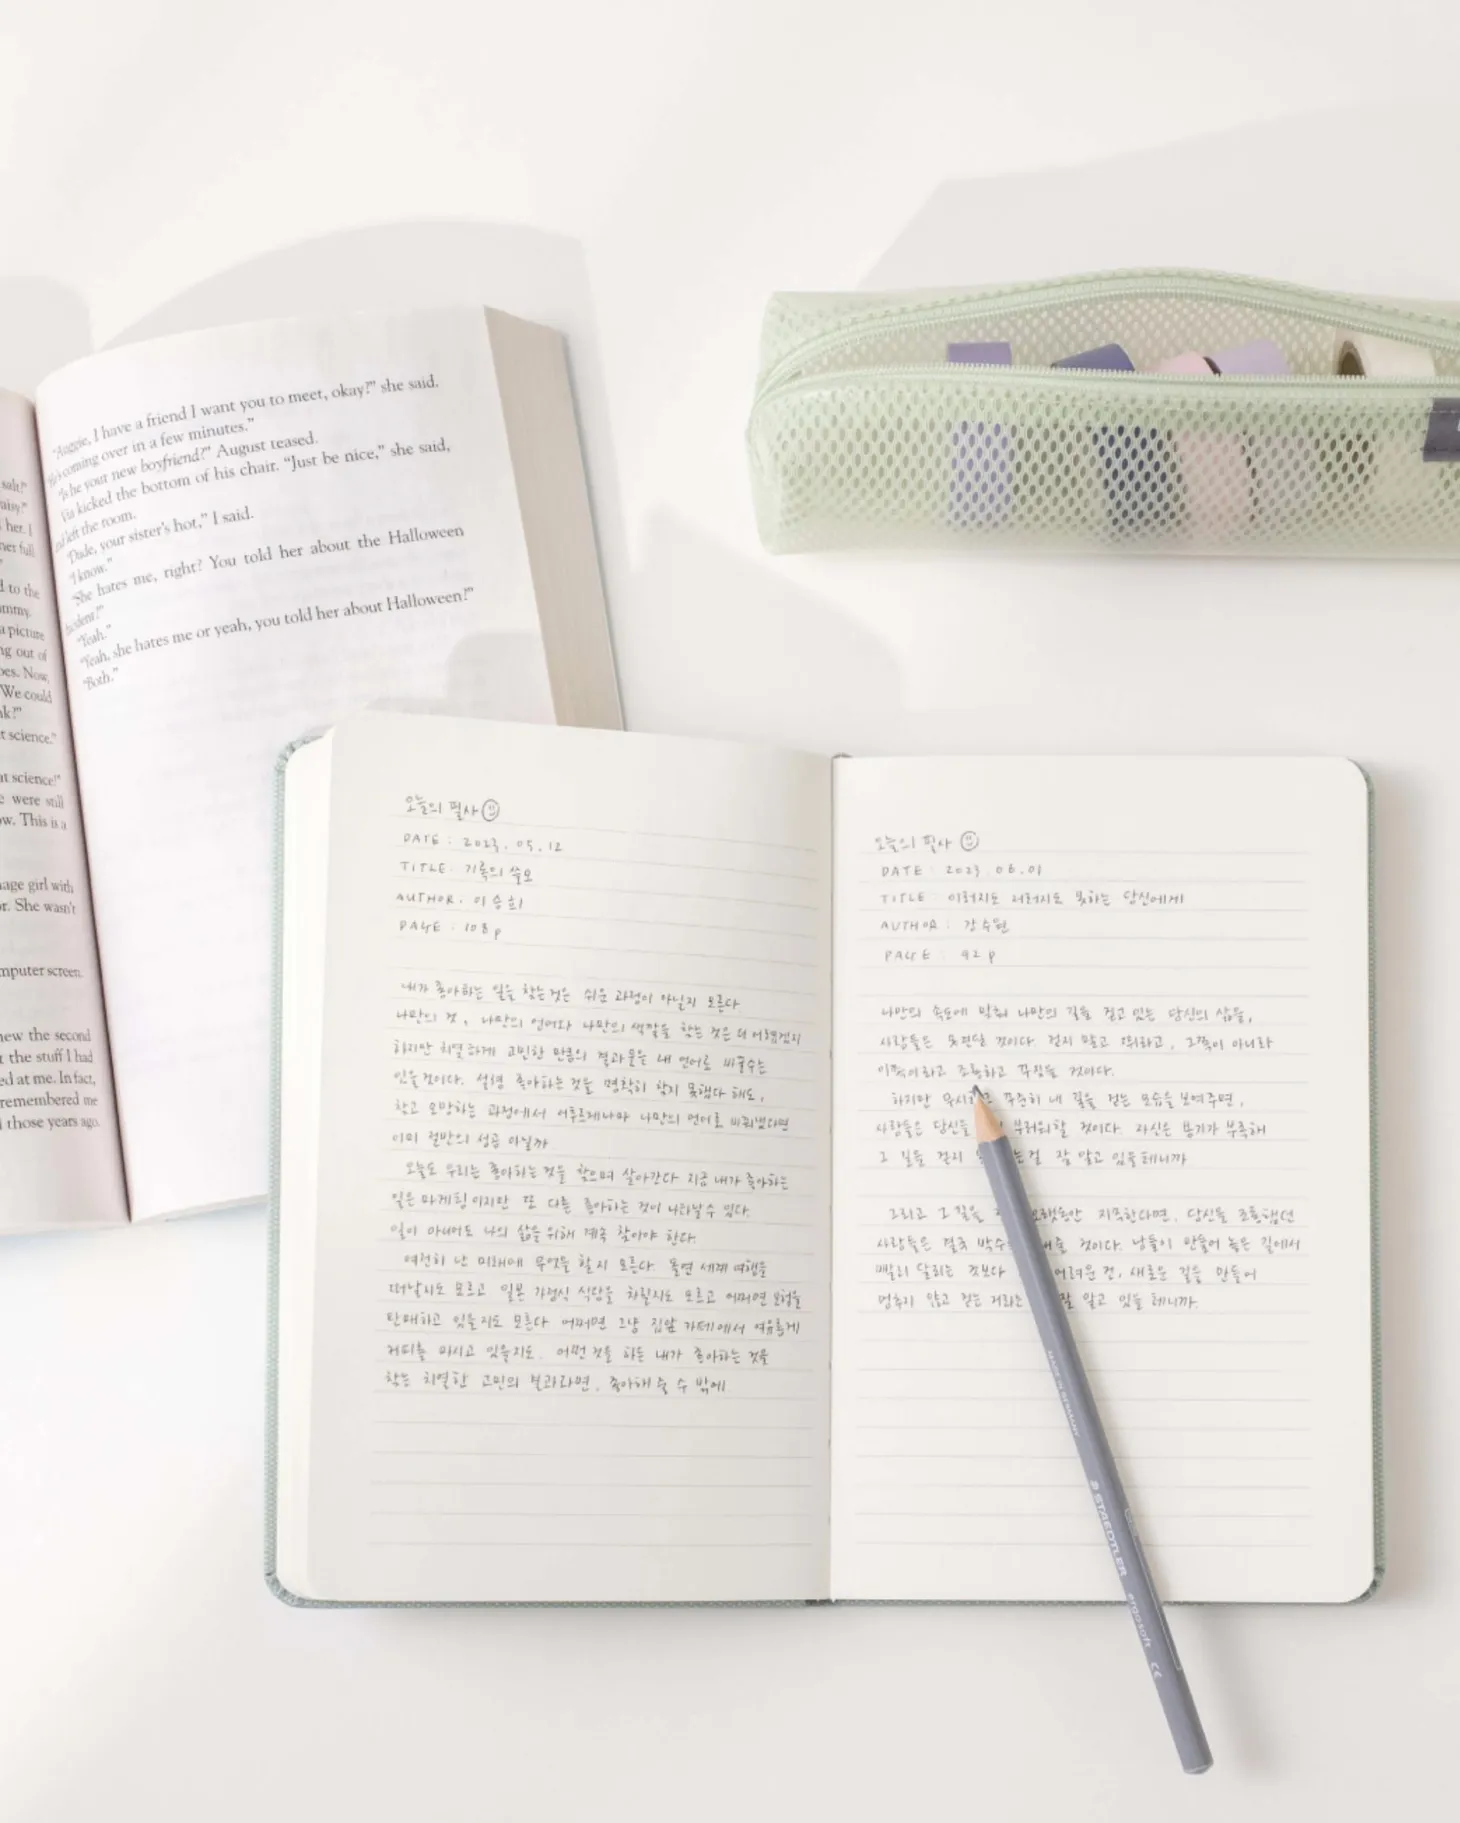 salt?"
her. I
her full
d to the
mmy.
a picture
ng out of
oes. Now,
We could
nk?"
t science."
at science!"
e were still
ow. This is a
nage girl with
or. She wasn't
mputer screen.
new the second
t the stuff I had
ed at me. In fact,
remembered me
l those years ago.
"Auggie, I have a friend I want you to meet, okay?" she said.
"He's coming over in a few minutes."
"Is he your new boyfriend?" August teased.
Via kicked the bottom of his chair. "Just be nice," she said,
and left the room.
"Dude, your sister's hot," I said.
"I know."
"She hates me, right? You told her about the Halloween
incident?"
"Yeah."
"Yeah, she hates me or yeah, you told her about Halloween?"
"Both."
오늘의 필사
DATE : 2023. 05. 12
TITLE : 기록의 쓸모
AUTHOR : 이승희
PAGE : 108 p
내가 좋아하는 일을 찾는 것은 쉬운 과정이 아닐지 모른다
나만의 것, 나만의 언어와 나만의 색깔을 찾는 것은 더 어렵겠지
하지만 치열하게 고민한 만큼의 결과물을 내 언어로 바꿀수는
있을것이다. 설령 좋아하는 것을 명확히 찾지 못했다 해도,
찾고 소망하는 과정에서 어루르레나마 나만의 언어로 바꿔냈다면
이미 절반의 성공 아닐까
오늘도 우리는 좋아하는 것을 찾으며 살아간다 지금 내가 좋아하는
일은 마케팅이지만 또 다른 좋아하는 것이 나타날 수 있다.
일이 아니어도 나의 삶을 위해 계속 찾아야 한다.
여전히 난 미래에 무엇을 할지 모른다. 돌연 세계 여행을
떠날지도 모르고 일본 가정식 식당을 차릴지도 모르고 어쩌면 보험을
판매하고 있을지도 모른다 어쩌면 그냥 집앞 카페에서 여유롭게
커피를 마시고 있을지도. 어떤 것을 하든 내가 좋아하는 것을
찾는 치열한 고민의 결과라면, 좋아해 줄 수 밖에
오늘의 필사
DATE : 2023. 06. 01
TITLE : 이러지도 저러지도 못하는 당신에게
AUTHOR : 강주원
PAGE : 92 p
나만의 속도에 맞춰 나만의 길을 걷고 있는 당신의 삶을,
사람들은 못견딜 것이다. 걷지 말고 뛰라고, 그쪽이 아니라
이쪽이라고 조롱하고 꾸짖을 것이다.
하지만 꾸준히 내 길을 걷는 모습을 보여주면,
사람들은 당신을 부러워할 것이다. 자신은 용기가 부족해
그 길을 걷지 는걸 잘 알고 있을테니까
그리고 그 길을 오랫동안 지속한다면, 당신을 조롱했던
사람들은 결국 박수를 쳐줄 것이다. 남들이 만들어 놓은 길에서
빨리 달리는 것보다 어려운 건, 새로운 길을 만들어
멈추지 않고 걷는 거라는 잘 알고 있을 테니까.
MADE IN GERMANY
STAEDTLER ergosoft CE